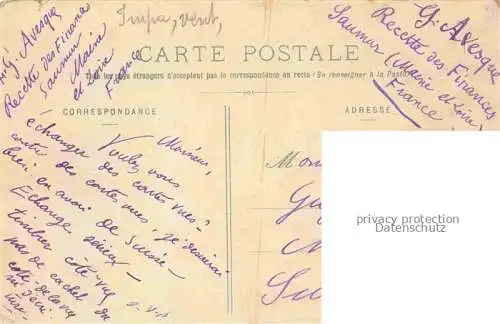 Impa, vent,
G. Avesque
Recette des Finances
Saumur
Maine
et Loire
France
G. Avesque
Recette des Finances
Saumur (Maine et Loire)
France
CARTE POSTALE
Tous les pays étrangers n'acceptent pas la correspondance au recto (Se renseigner à la Poste)
CORRESPONDANCE
ADRESSE
Monsieur,
Voulez vous
échanger des cartes vues
contre des cartes vues? je désirerai
bien en avoir de Suisse -
Echange sérieux -
timbre côté vue
pas de cachet du
côté de la vue
Mon
privacy protection
Datenschutz